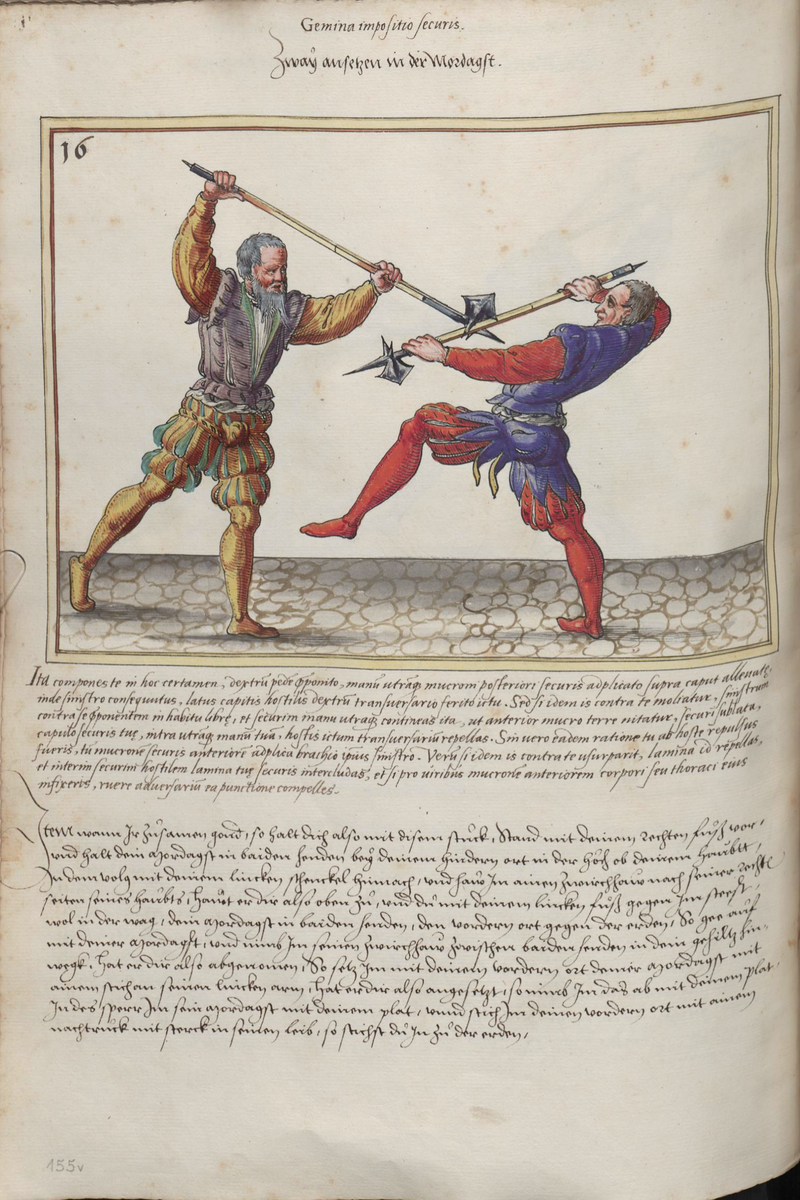 Gemina impositio securis.
Zwaÿ ansetzen in der Mordagst.
16
Ita compones te in hoc certamen, dextrũ pede p̃ponito, manu utraq̃ mucrom posteriori securis adplicato supra caput alleuatę,
inde sinistro consequutus, latus capitis hostilis dextrũ transuersario ferito ictu. Sed si idem is contra te moliatur, sinistrum
contra se p̃ponentem in habitu librę, et securim manu utraq̃ contineas ita, ut anterior mucro terre nitatur, securi sublata,
capulo securis tuę, intra utraq̃ manũ tuã, hostis ictum transuersariũ repellas. Sin uero eadem ratione tu ab hoste repulsus
fueris, tu mucrone securis anteriore adplica brachio ipsius sinistro. Verũ si idem is contra te usurparit, lamina id repellas,
et interim securim hostilem lamina tuę securis intercludas, et si pro uiribus mucronẽ anteriorem corpori seu thoraci eius
infixeris, ruere aduersariũ ea punctione compelles.
Item wann Ir zůsamen gond, so halt dich also mit disem stuck, Stand mit deinem rechten fůß vor,
vnd halt dein mordagst in baiden henden beÿ deinem hindern ort in der höch ob deinem haubtt,
Indem volg mit deinem lincken schenckel hinnach, vnd haw Im ainen zwirchhaw nach seiner rechte
seiten seines haubts, hawt er dir also oben zů, vnd du mit deinem lincken fůß gegen Im steest
wol in der wag, dein mordagst in baiden henden, den vordern ort gegen der erden, So gee auf
mit deiner mordagst, vnd nimb Im seinen zwirchhaw zwischen baiden henden in dein gehiltz hin-
wegk, hat er dir also abgenomen, So setz Im mit deinem vordern ort deiner mordagst mit
ainem stich an seinen lincken arm, hat er dir also angesetzt, so nimb Im das ab mit deinem plat,
Indes sperr Im sein mordagst mit deinem plat, vnnd stich Im deinen vordern ort mit ainem
nachtruck mit sterck in seinen leib, so stichst du In zů der erden,
155v